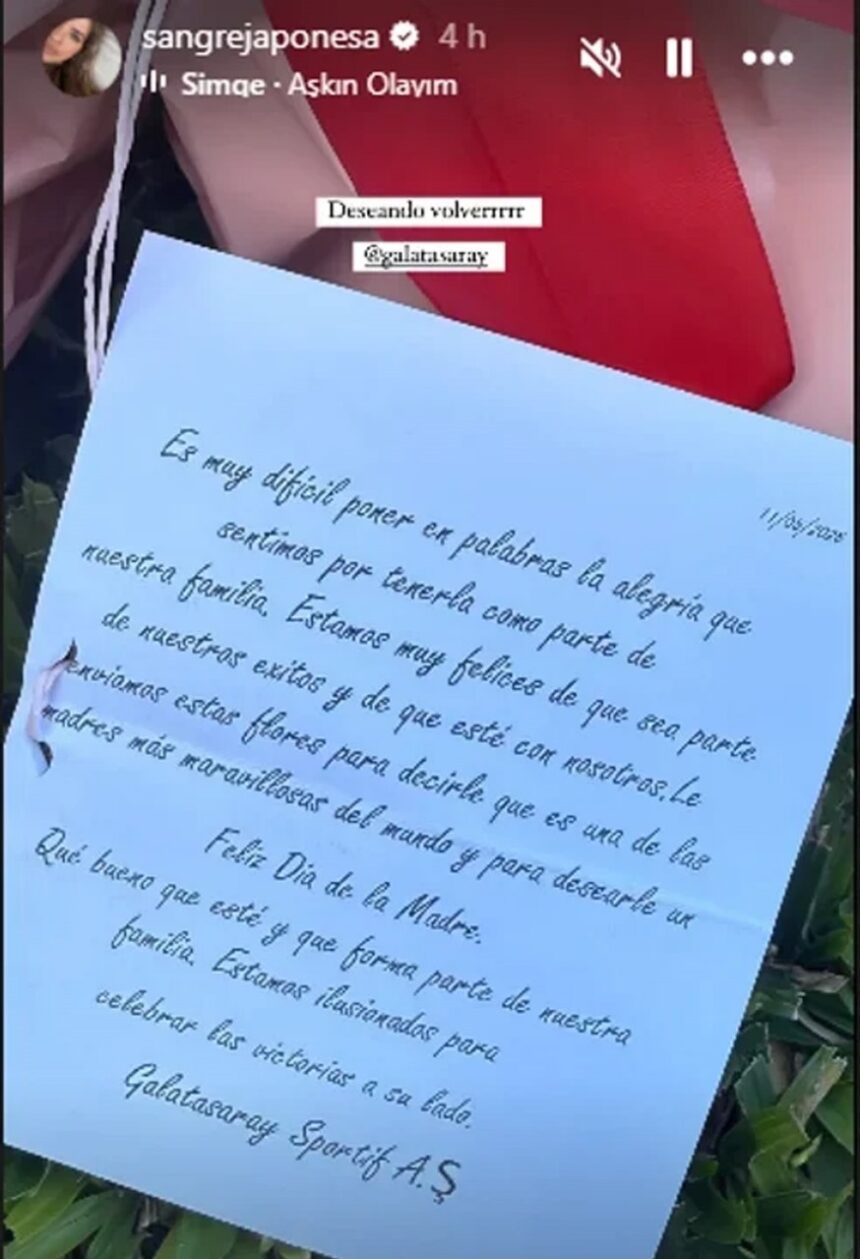 sangrejaponesa 4 h
Simge · Aşkın Olayım
Deseando volverrrrr
@galatasaray
11/05/2025
Es muy difícil poner en palabras la alegría que
sentimos por tenerla como parte de
nuestra familia. Estamos muy felices de que sea parte
de nuestros exitos y de que esté con nosotros.Le
enviamos estas flores para decirle que es una de las
madres más maravillosas del mundo y para desearle un
Feliz Dia de la Madre.
Qué bueno que esté y que forma parte de nuestra
familia. Estamos ilusionados para
celebrar las victorias a su lado.
Galatasaray Sportif A.Ş